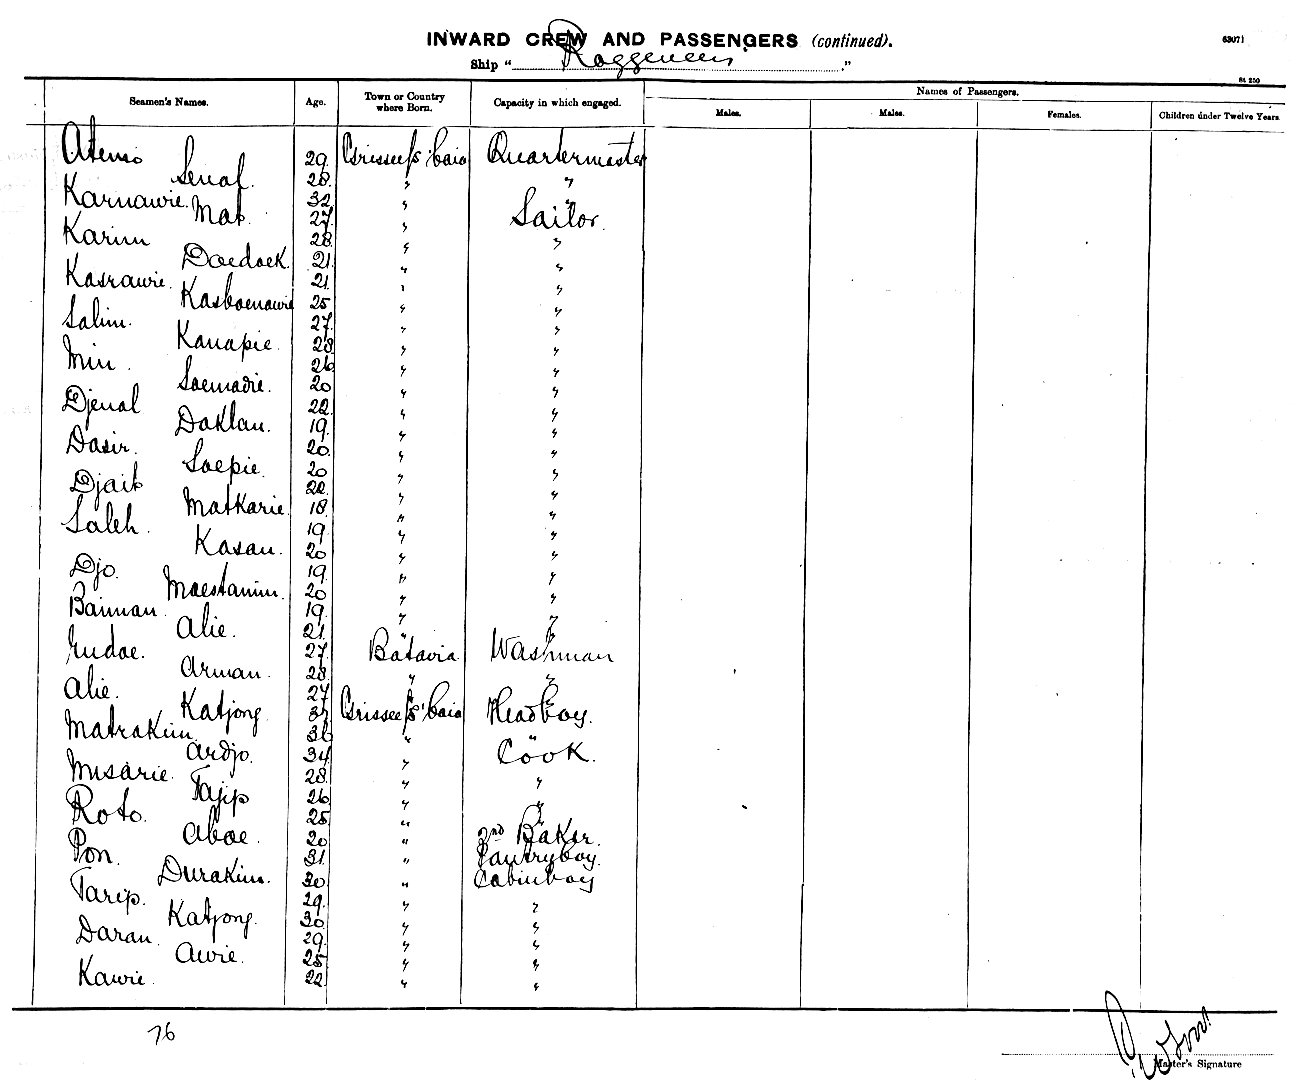 INWARD CREW AND PASSENGERS (continued). 63071
Ship "Roggeveen."
St 250
Seamen's Names. Age. Town or Country where Born. Capacity in which engaged. Names of Passengers.
Males. Males. Females. Children under Twelve Years.
29. Grissee/S'baia Quartermaster
Senal. 28. " "
Karnawie. 32 " "
Mat. 27 " Sailor.
Karim 28. " "
Doedoek. 21. " "
Kasrawie. 21 " "
Kasboenawie 25 " "
Salim. 27. " "
Kanapie. 28 " "
Min. 26 " "
Soemadie. 20 " "
Djenal 22. " "
Daklan. 19. " "
Dasir. 20. " "
Soepie. 20 " "
Djaib 22. " "
Matkarie 18 " "
Saleh. 19 " "
Kasan. 20 " "
Djo. 19. " "
Moestamin. 20 " "
Baiman. 19. " "
Alie. 21. " "
27. Batavia. Washman
Arman. 28. " "
Alie. 27 " "
Katjong. 37 Grissee/S'baia Headboy.
Matrakim. 36 " "
Ardjo. 34 " Cook.
Misarie. 28. " "
Tajip 26 " "
Roto. 25 " "
Aboe. 20 " 2nd Baker.
Pon. 31. " Pantryboy.
Durakim. 30 " Cabinboy
Tarip. 29. " "
Katjong. 30 " "
Daran. 29. " "
Awie. 25 " "
Kawie. 22 " "
76
Master's Signature